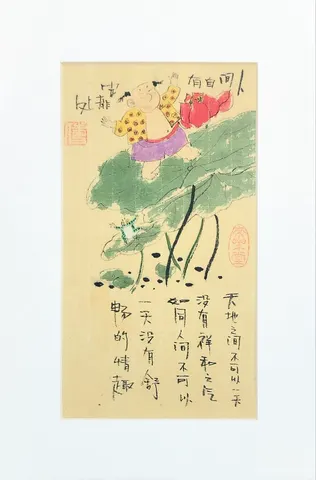 人间自有
天地之间不可以一天
没有祥和之气
如同人间不可以
一天没有舒
畅的情趣